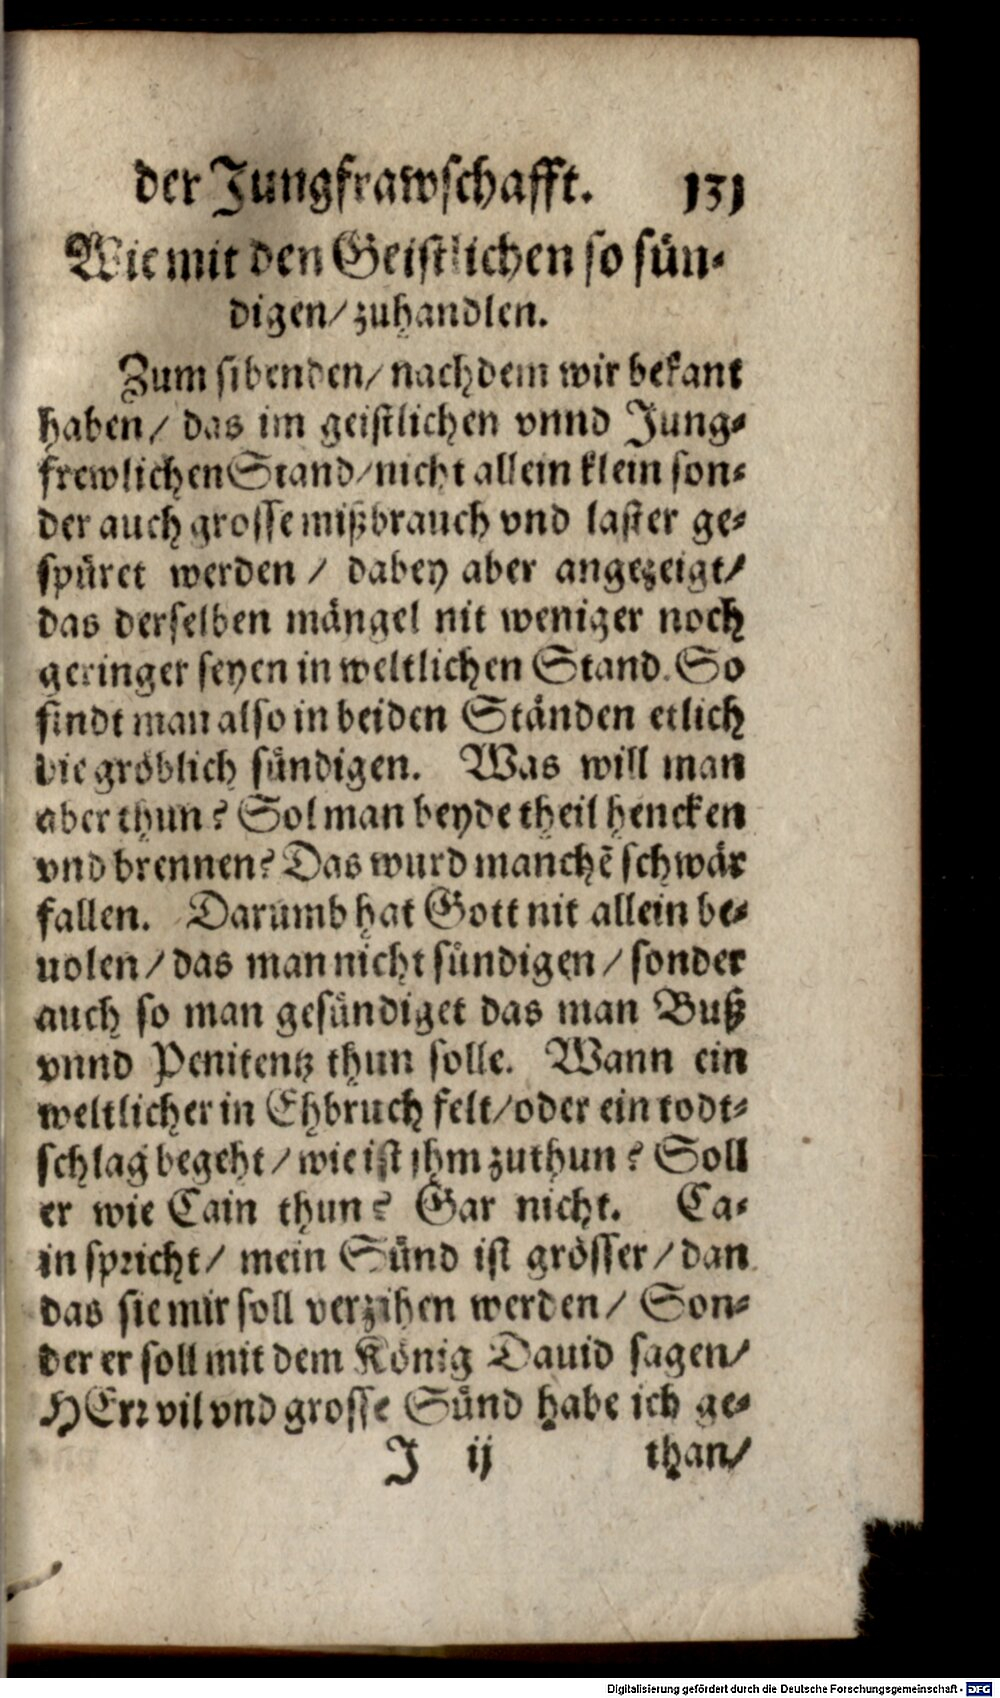 der Jungfrawschafft. 131
Wie mit den Geistlichen so sün-
digen/ zuhandlen.
Zum sibenden/ nachdem wir bekant
haben/ das im geistlichen vnnd Jung-
frewlichen Stand/ nicht allein klein son-
der auch grosse mißbrauch vnd laster ge-
spüret werden / dabey aber angezeigt/
das derselben mängel nit weniger noch
geringer seyen in weltlichen Stand. So
findt man also in beiden Ständen etlich
die gröblich sündigen. Was will man
aber thun? Sol man beyde theil hencken
vnd brennen? Das wurd manchē schwär
fallen. Darumb hat Gott nit allein be-
uolen/ das man nicht sündigen/ sonder
auch so man gesündiget das man Buß
vnnd Penitentz thun solle. Wann ein
weltlicher in Ehbruch felt/ oder ein todt-
schlag begeht/ wie ist ihm zuthun? Soll
er wie Cain thun? Gar nicht. Ca-
in spricht/ mein Sünd ist grösser/ dan
das sie mir soll verzihen werden/ Son-
der er soll mit dem König Dauid sagen/
HErr vil vnd grosse Sünd habe ich ge-
J ij than/
Digitalisierung gefördert durch die Deutsche Forschungsgemeinschaft - DFG